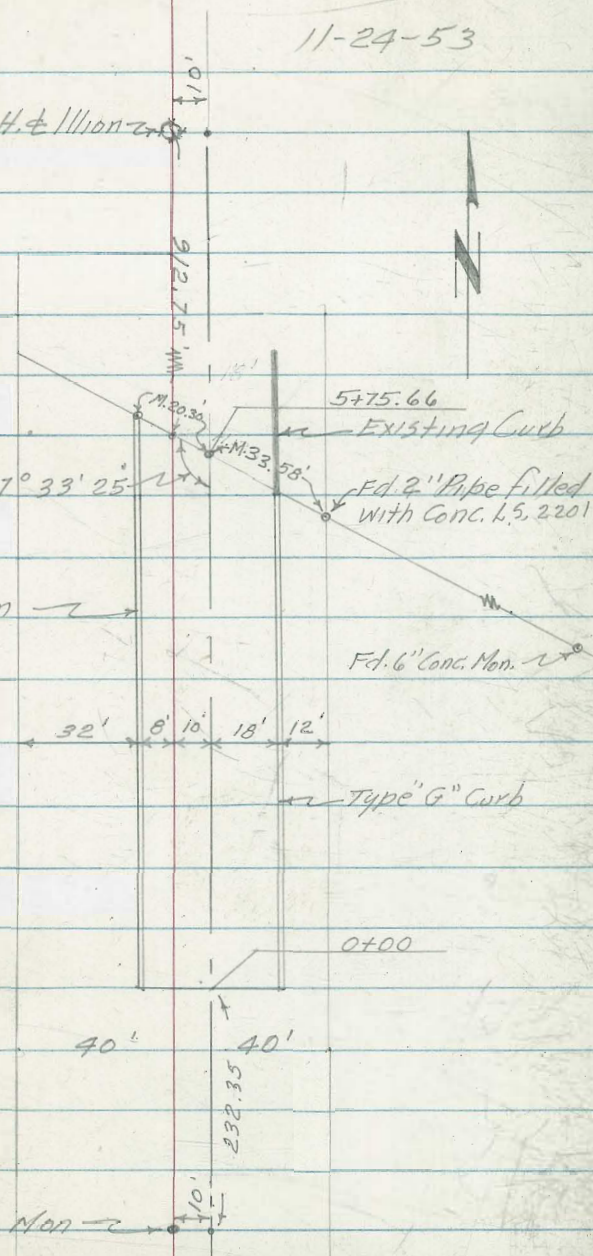 11-24-53
10'
H. & Illion
912.75'
N
15'
M.20.30'
5+75.66
M.33.58'
Existing Curb
7° 33' 25"
Fd. 2" Pipe filled
with Conc. L.S. 2201
n
Fd. 6" Conc. Mon.
32' 8' 10' 18' 12'
Type "G" Curb
0+00
40' 40'
232.35
10'
Mon